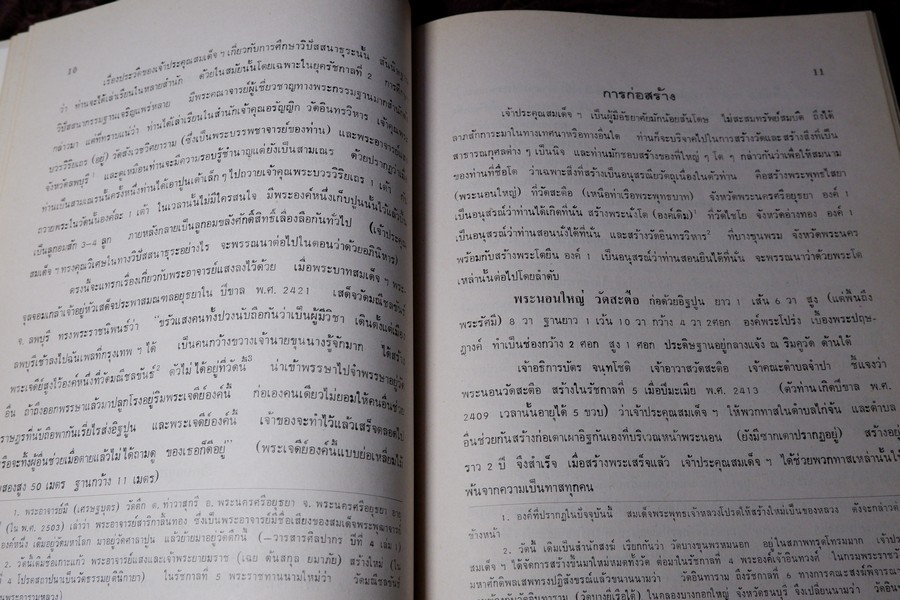 10
เรื่องประวัติของเจ้าประคุณสมเด็จ ฯ เกี่ยวกับการศึกษาวิปัสสนาธุระนั้น
ว่า ท่านจะได้เล่าเรียนในหลายสำนัก ด้วยในสมัยนั้นโดยเฉพาะในยุครัชกาลที่ 2
วิปัสสนากรรมฐานเจริญแพร่หลาย มีพระคณาจารย์ผู้เชี่ยวชาญทางพระกรรมฐานมาก
กล่าวมา แต่ที่ทราบแน่ว่า ท่านได้เล่าเรียนในสำนักเจ้าคุณอรัญญิก วัดอินทรวิหาร
บวรวิริยเถร (อยู่) วัดสังเวชวิศยาราม (ซึ่งเป็นพระบรรพชาจารย์ของท่าน) และพระอาจารย์
จังหวัดลพบุรี¹ และดูเหมือนท่านจะมีความรอบรู้ชำนาญแต่ยังเป็นสามเณร ด้วยปรากฏ
ท่านเป็นสามเณรนั้นครั้งหนึ่งท่านได้เอาปูนเต้าเล็ก ๆ ไปถวายเจ้าคุณพระบวรวิริยเถร 1 เต้า
ถวายพระในวัดนั้นองค์ละ 1 เต้า ในเวลานั้นไม่มีใครสนใจ มีพระองค์หนึ่งเก็บปูนนั้นไว้
เป็นลูกอมสัก 3-4 ลูก ภายหลังกลายเป็นลูกอมขลังศักดิ์สิทธิ์เลื่องลือกันทั่วไป (เจ้าประคุณ
สมเด็จ ฯ ทรงคุณวิเศษในทางวิปัสสนาธุระอย่างไร จะพรรณนาต่อไปในตอนว่าด้วยอภินิหาร)
ตรงนี้จะแทรกเรื่องเกี่ยวกับพระอาจารย์แสงลงไว้ด้วย เมื่อพระบาทสมเด็จ ฯ พระ
จุลจอมเกล้าเจ้าอยู่หัวเสด็จประพาสมณฑลอยุธยาใน ปีขาล พ.ศ. 2421 เสด็จวัดมณีชลขันธ์
จ. ลพบุรี ทรงพระราชนิพนธ์ว่า "ขรัวแสงคนทั้งปวงนับถือกันว่าเป็นผู้มีวิชา เดินตั้งแต่เมือง
ลพบุรีเช้าลงไปฉันเพลที่กรุงเทพ ฯ ได้ เป็นคนกว้างขวางเจ้านายขุนนางรู้จักมาก ได้สร้าง
พระเจดีย์สูงไว้องค์หนึ่งที่วัดมณีชลขันธ์² ตัวไม่ได้อยู่ที่วัดนี้³ น่าเข้าพรรษาไปจำพรรษาอยู่
อื่น ถ้าถึงออกพรรษาแล้วมาปลูกโรงอยู่ริมพระเจดีย์องค์นี้ ก่อเองคนเดียวไม่ยอมให้คนอื่นช่วย
ราษฎรที่นับถือพากันเรี่ยไรส่งอิฐปูน และพระเจดีย์องค์นี้ เจ้าของจะทำไว้แล้วเสร็จตลอดไป
หรือจะทิ้งผู้อื่นช่วยเมื่อตายแล้วไม่ได้ถามดู ของเธอก็ดีอยู่" (พระเจดีย์องค์นี้แบบย่อเหลี่ยมไม้
สิบสองสูง 50 เมตร ฐานกว้าง 11 เมตร)
1. พระอาจารย์มี (เศรษฐบุตร) วัดตึก ต. ท่าวาสุกรี อ. พระนครศรีอยุธยา จ. พระนครศรีอยุธยา
(ใน พ.ศ. 2503) เล่าว่า พระอาจารย์สาริกลิ้นทอง ซึ่งเป็นพระอาจารย์มีชื่อเสียงของสมเด็จพระพุฒาจารย์
องค์หนึ่ง เดิมอยู่วัดมหาโลก มาอยู่วัดศาลาปูน แล้วย้ายมาอยู่วัดตึกนี้ (–วารสารศิลปากร ปีที่ 4 เล่ม 1)
2. วัดนี้เดิมชื่อเกาะแก้ว พระอาจารย์แสงและเจ้าพระยายมราช (เฉย ต้นสกุล ยมาภัย) สร้างใหม่
4 โปรดสถาปนาเป็นวัดธรรมยุติกนิกาย) ในรัชกาลที่ 5 พระราชทานนามใหม่ว่า วัดมณีชลขันธ์
11
การก่อสร้าง
เจ้าประคุณสมเด็จ ฯ เป็นผู้มีอัธยาศัยมักน้อยสันโดษ ไม่สะสมทรัพย์สมบัติ ถึงได้
ลาภสักการะมาในทางเทศนาหรือทางอื่นใด ท่านก็จะบริจาคไปในการสร้างวัดและสร้างสิ่งที่เป็น
สาธารณกุศลต่าง ๆ เป็นนิจ และท่านมักชอบสร้างของที่ใหญ่ ๆ โต ๆ กล่าวกันว่าเพื่อให้สมนาม
ของท่านที่ชื่อโต ว่าเฉพาะสิ่งที่สร้างเป็นอนุสรณียวัตถุเนื่องในตัวท่าน คือสร้างพระพุทธไสยา
(พระนอนใหญ่) ที่วัดสะตือ (เหนือท่าเรือพระพุทธบาท) จังหวัดพระนครศรีอยุธยา องค์ 1
เป็นอนุสรณ์ว่าท่านได้เกิดที่นั่น สร้างพระนั่งโต (องค์เดิม)¹ ที่วัดไชโย จังหวัดอ่างทอง องค์ 1
เป็นอนุสรณ์ว่าท่านสอนนั่งได้ที่นั่น และสร้างวัดอินทรวิหาร² ที่บางขุนพรม จังหวัดพระนคร
พร้อมกับสร้างพระโตยืน องค์ 1 เป็นอนุสรณ์ว่าท่านสอนยืนได้ที่นั่น จะพรรณนาว่าด้วยพระโต
เหล่านั้นต่อไปโดยลำดับ
พระนอนใหญ่ วัดสะตือ ก่อด้วยอิฐปูน ยาว 1 เส้น 6 วา สูง (แต่พื้นถึง
พระรัศมี) 8 วา ฐานยาว 1 เว้น 10 วา กว้าง 4 วา 2ศอก องค์พระโปร่ง เบื้องพระปฤษ-
ฎางค์ ทำเป็นช่องกว้าง 2 ศอก สูง 1 ศอก ประดิษฐานอยู่กลางแจ้ง ณ ริมคูวัด ด้านใต้
เจ้าอธิการบัตร จนฺทโชติ เจ้าอาวาสวัดสะตือ เจ้าคณะตำบลจำปา ชี้แจงว่า
พระนอนวัดสะตือ สร้างในรัชกาลที่ 5 เมื่อปีมะเมีย พ.ศ. 2413 (ตัวท่านเกิดปีขาล พ.ศ.
2409 เวลานั้นอายุได้ 5 ขวบ) ว่าเจ้าประคุณสมเด็จ ฯ ให้พวกทาสในตำบลไก่จ้น และตำบล
อื่นช่วยกันสร้างก่อเตาเผาอิฐกันเองที่บริเวณหน้าพระนอน (ยังมีซากเตาปรากฏอยู่) สร้างอยู่
ราว 2 ปี จึงสำเร็จ เมื่อสร้างพระเสร็จแล้ว เจ้าประคุณสมเด็จ ฯ ได้ช่วยพวกทาสเหล่านั้นให้
พ้นจากความเป็นทาสทุกคน
1. องค์ที่ปรากฏในปัจจุบันนี้ สมเด็จพระพุทธเจ้าหลวงโปรดให้สร้างใหม่เป็นของหลวง ดังจะกล่าวต่อ
ข้างหน้า
2. วัดนี้ เดิมเป็นสำนักสงฆ์ เรียกกันว่า วัดบางขุนพรหมนอก อยู่ในสภาพทรุดโทรมมาก เจ้าประ
สมเด็จ ฯ ได้จัดการสร้างขึ้นมาใหม่หมดทั้งวัด ต่อมาในรัชกาลที่ 4 พระองค์เจ้าอินทวงศ์ ในกรมพระราช
มหาศักดิพลเสพทรงปฏิสังขรณ์แล้วขนานนามว่า วัดอินทาราม ถึงรัชกาลที่ 6 ทางการคณะสงฆ์พิจารณา